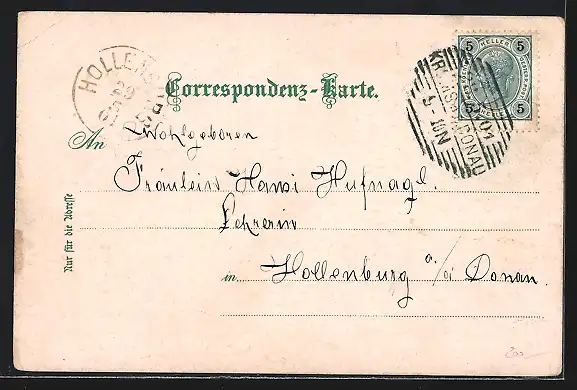 HOLLENB
29
5
01
Correspondenz-Karte.
5 HELLER 5
5 5
KREMS A/D DONAU
5-10N
An Wohlgeboren
Fräulein Hansi Hufnagl.
Lehrerin
in Hollenburg a/d Donau.
Nur für die Adresse